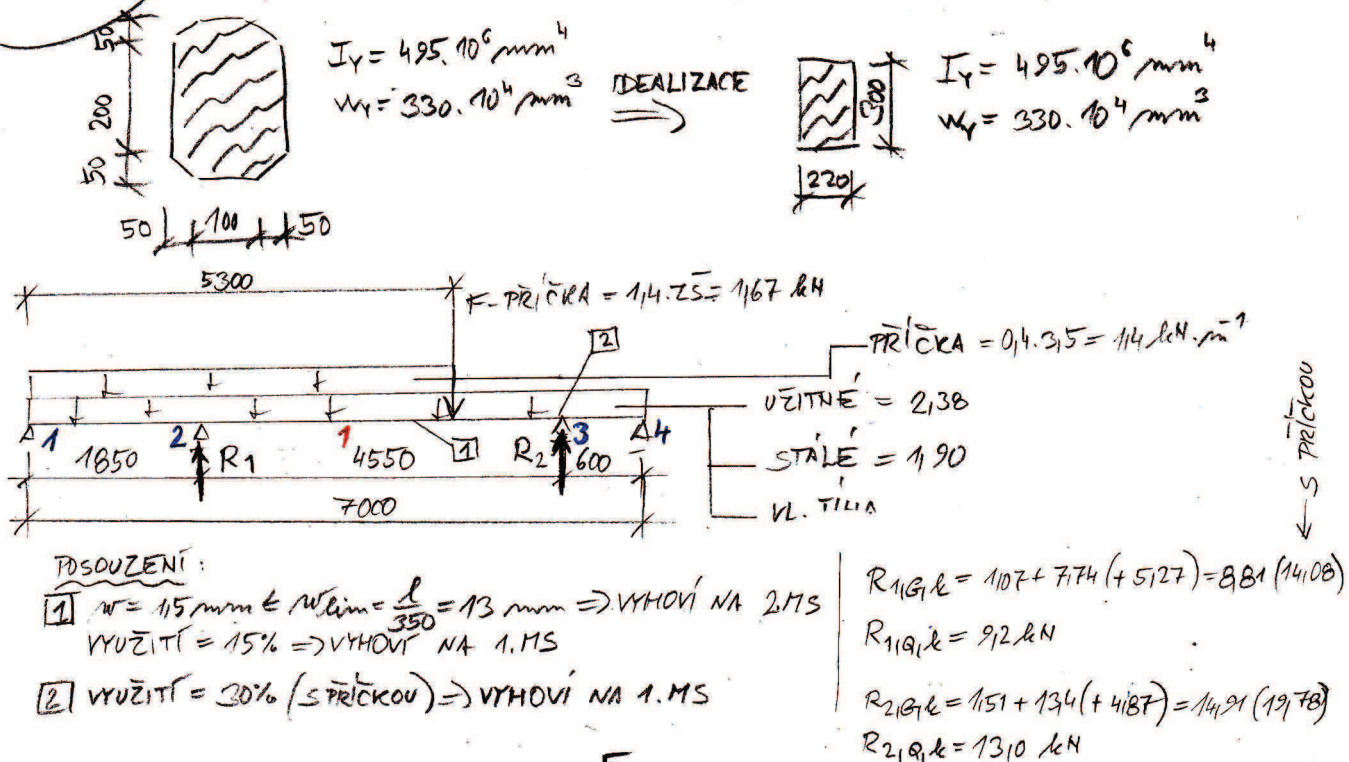 50
200
50
50 100 50
I_Y = 495.10⁶ mm⁴
W_Y = 330.10⁴ mm³
IDEALIZACE
300
220
I_Y = 495.10⁶ mm⁴
W_Y = 330.10⁴ mm³
5300
F-PŘÍČKA = 1,4.ZŠ = 1,67 kN
2
PŘÍČKA = 0,4.3,5 = 1,4 kN.m⁻¹
UŽITNÉ = 2,38
STÁLÉ = 1,90
VL. TÍHA
1 2 1 1 3 4
1850 R₁ 4550 R₂ 600
7000
← S PŘÍČKOU
POSOUZENÍ:
1 w = 1,5 mm ≤ w_lim = l/350 = 13 mm => VYHOVÍ NA 2MS
VYUŽITÍ = 15% => VYHOVÍ NA 1.MS
2 VYUŽITÍ = 30% (S PŘÍČKOU) => VYHOVÍ NA 1.MS
R₁,G,k = 1,07 + 7,74 (+ 5,27) = 8,81 (14,08)
R₁,Q,k = 9,2 kN
R₂,G,k = 1,51 + 13,4 (+ 4,87) = 14,91 (19,78)
R₂,Q,k = 13,0 kN